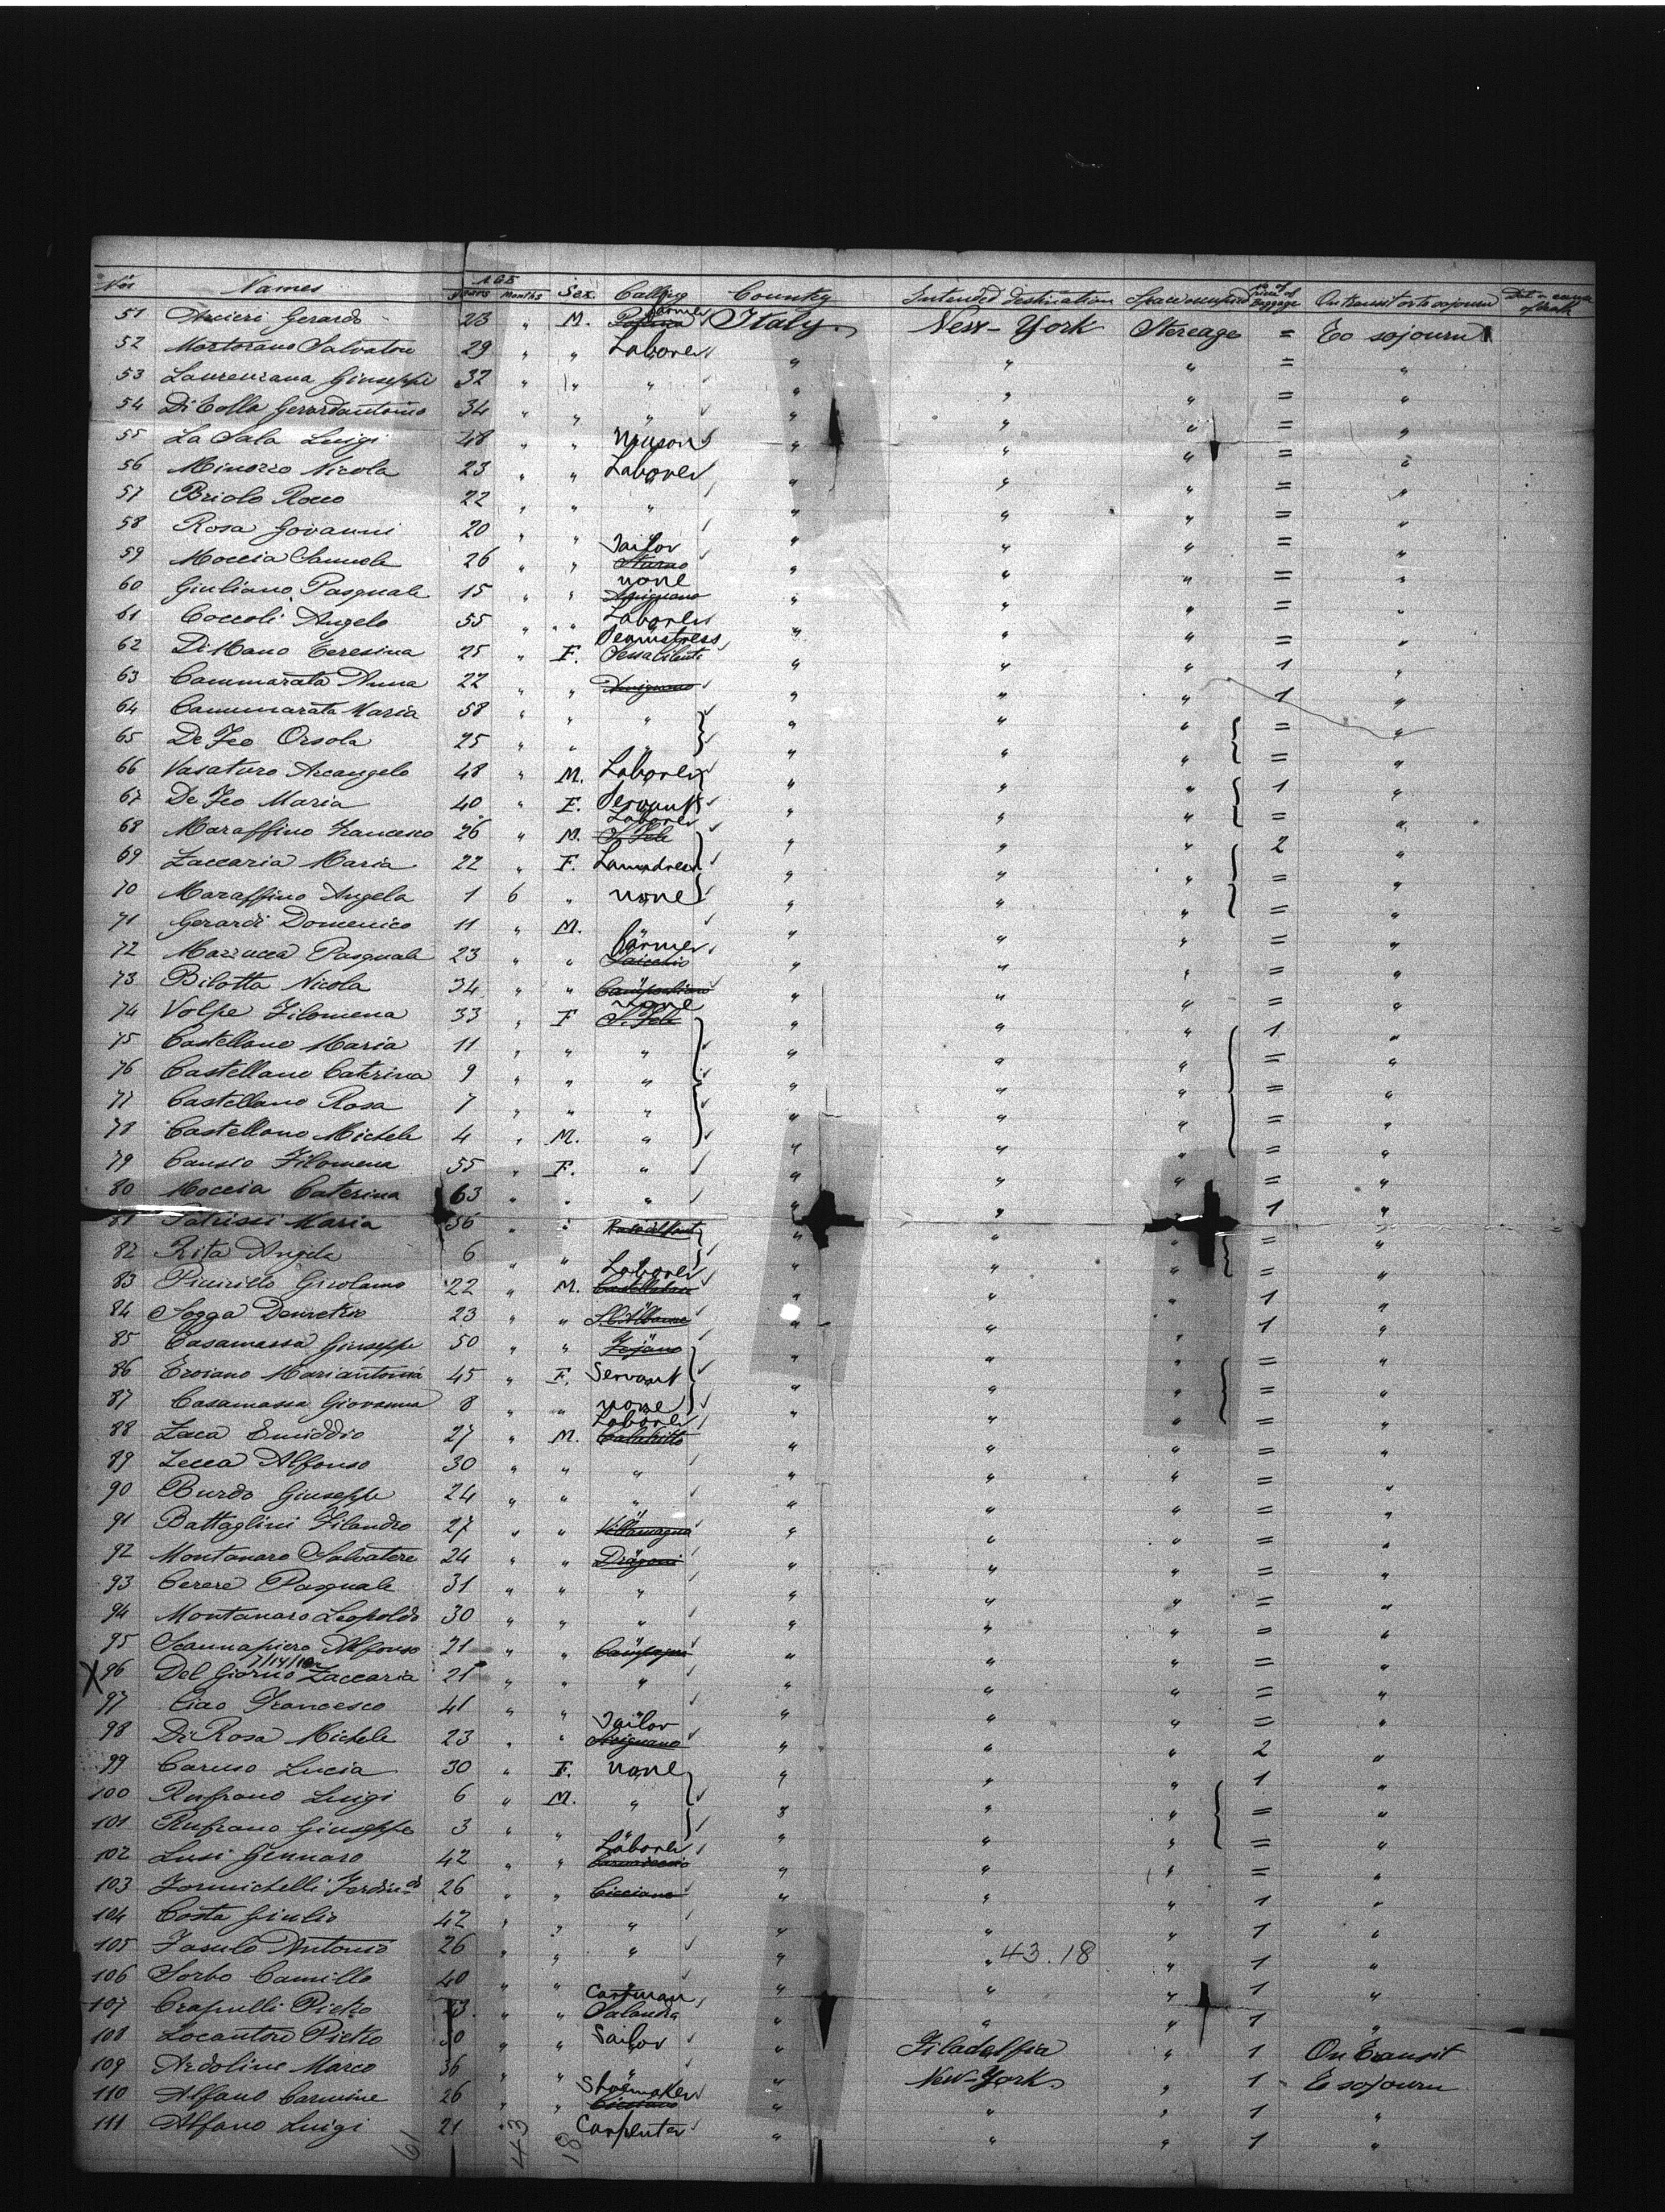 Nos Names AGE Years Months Sex. Calling Country Intended destination Space occupied No of pieces of Baggage On transit or to sojourn
51 Arcieri Gerardo 23 " M. Farmer Italy. New-York Steerage = To sojourn
52 Martorano Salvatore 29 " " Laborer " " " = "
53 Laurenzana Giuseppe 32 " " " " " " = "
54 Di Colla Gerardantonio 34 " " " " " " = "
55 La Sala Luigi 48 " " Mason " " " = "
56 Minozzo Nicola 23 " " Laborer " " " = "
57 Briolo Rocco 22 " " " " " " = "
58 Rosa Govanni 20 " " " " " " = "
59 Moccia Samuele 26 " " Tailor Sturno " " " = "
60 Giuliano Pasquale 15 " " none Avignano " " " = "
61 Coccoli Angelo 55 " " Laborer " " " = "
62 Di Mano Teresina 25 " F. Seamstress Sessa Cilento " " " 1 "
63 Cammarata Anna 22 " " Avignano " " " 1 "
64 Cammarata Maria 58 " " " " " " = "
65 De Feo Orsola 25 " " " " " " = "
66 Vasaturo Arcangelo 48 " M. Laborer " " " 1 "
67 De Feo Maria 40 " F. Servant " " " = "
68 Maraffino Francesco 26 " M. Laborer S. Fele " " " 2 "
69 Zaccaria Maria 22 " F. Laundress " " " = "
70 Maraffino Angela 1 6 " none " " " = "
71 Gerardi Domenico 11 " M. " " " " = "
72 Mazzucca Pasquale 23 " " Farmer " " " = "
73 Bilotta Nicola 34 " " " " " = "
74 Volpe Filomena 33 " F none S. Fele " " " 1 "
75 Castellano Maria 11 " " " " " " = "
76 Castellano Caterina 9 " " " " " " = "
77 Castellano Rosa 7 " " " " " " = "
78 Castellano Michele 4 " M. " " " " = "
79 Cansio Filomena 55 " F. " " " " = "
80 Moccia Caterina 63 " " " " " " 1 "
81 Patrissi Maria 36 " " " " " = "
82 Rita Angela 6 " " " " " = "
83 Picirillo Girolamo 22 " M. Laborer " " " 1 "
84 Sogga Demetrio 23 " " " " " 1 "
85 Casamassa Giuseppe 50 " " " " " " = "
86 Troiano Mariantonia 45 " F. Servant " " " = "
87 Casamassa Giovanna 8 " " none " " " = "
88 Zaca Emiddio 27 " M. Laborer Calabritto " " " = "
89 Zecca Alfonso 30 " " " " " " = "
90 Burdo Giuseppe 24 " " " " " " = "
91 Battaglini Filandro 27 " " " Villamagna " " " = "
92 Montanaro Salvatore 24 " " " Dragoni " " " = "
93 Cerere Pasquale 31 " " " " " " = "
94 Montanaro Leopoldo 30 " " " " " " = "
95 Scannapiero Alfonso 21 " " " Campagna " " " = "
7/14/10
X 96 Del Giorno Zaccaria 21 " " " " " " = "
97 Ciao Francesco 41 " " " " " = "
98 Di Rosa Michele 23 " " Tailor Avignano " " " 2 "
99 Caruso Lucia 30 " F. none " " " 1 "
100 Rufrano Luigi 6 " M. " " " " = "
101 Rufrano Giuseppe 3 " " " " " = "
102 Lusi Gennaro 42 " " Laborer " " " = "
103 Formichelli Ferdindo 26 " " " Cicciano " " " 1 "
104 Costa Giulio 42 " " " " " " 1 "
105 Fasulo Antonio 26 " " " " " 43.18 " 1 "
106 Sorbo Camillo 40 " " " " " " 1 "
107 Crapulli Pietro 23 " " Cartman Salandra " " " 1 "
108 Locantore Pietro 30 " " Tailor " Filadelfia " 1 On transit
109 Ardolino Marco 36 " " " " New-York " 1 To sojourn
110 Alfano Carmine 26 " " Shoemaker Cicciano " " " 1 "
111 Alfano Luigi 21 " " Carpenter " " " 1 "
61 43 18